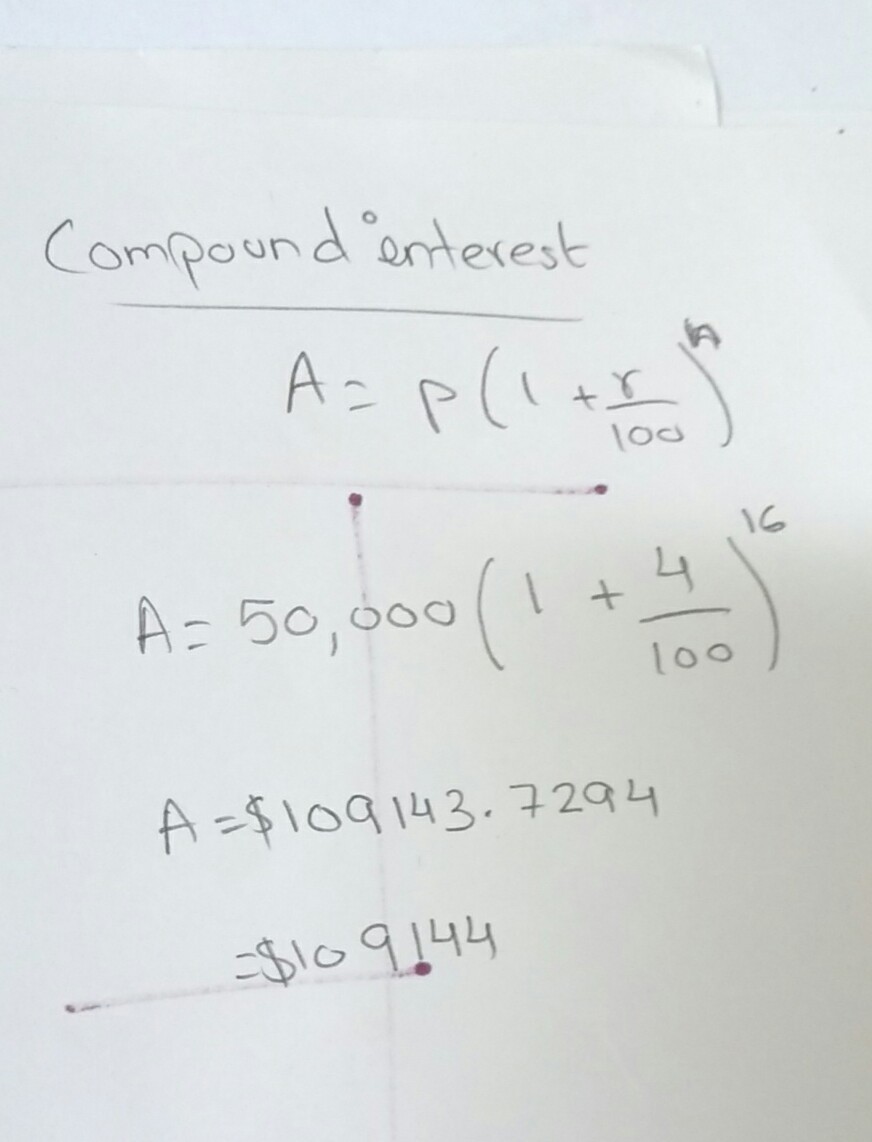 Compound interest
A = P(1 + r/100)^n
A = 50,000(1 + 4/100)^16
A = $109143.7294
= $109144